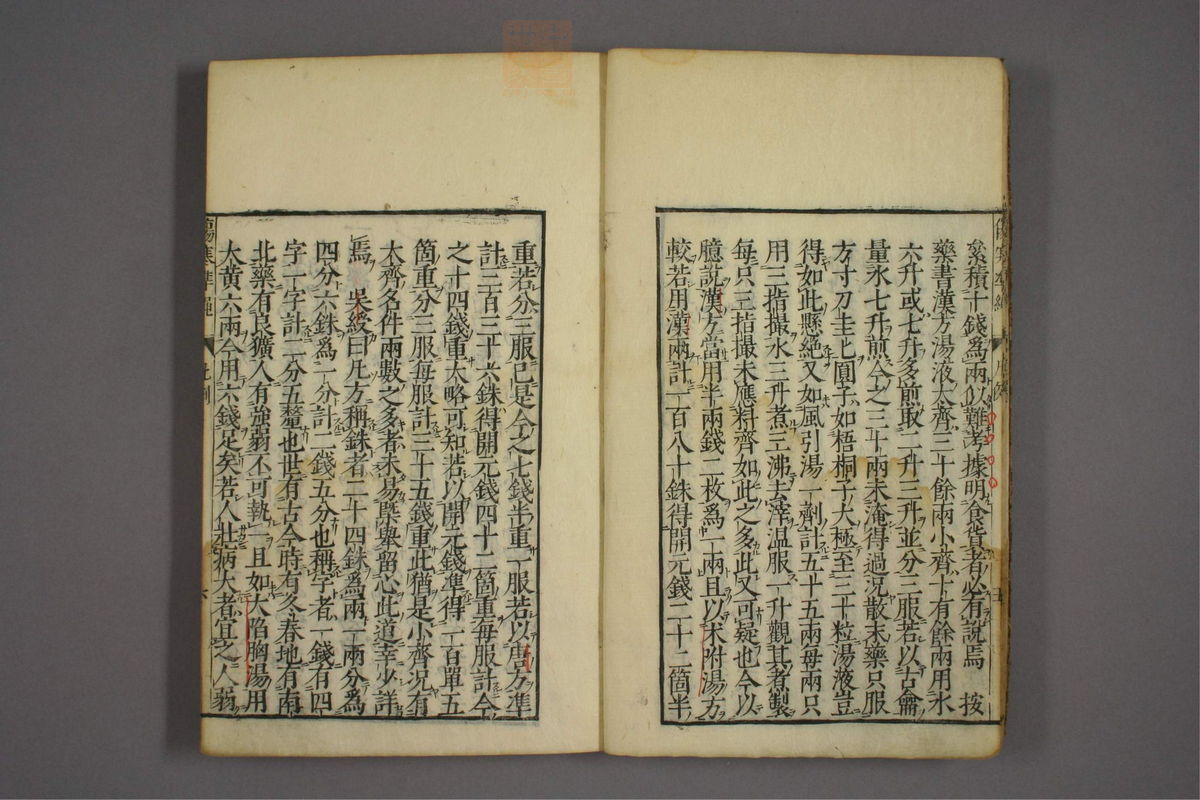 絫積十錢爲兩似難考據明食貨者必有說焉　按
藥書漢方湯液大齊三十餘兩小齊十有餘兩用水
六升或七升多煎取二升三升並分三服若以古龠
量水七升煎今之三十兩未淹得過況散末藥只服
方寸刀圭匕圓子如梧桐子大極至三十粒湯液豈
得如此懸絶又如風引湯一劑計五十五兩每兩只
用三指撮水三升煮三沸去滓温服一升觀其煮製
每只三指撮未應料齊如此之多此又可疑也今以
臆說漢方當用半兩錢二枚爲一兩且以术附湯方
較若用漢兩計一百八十銖得開元錢二十二箇半
重若分三服已是今之七錢半重一服若以唐方準
計三百三十六銖得開元錢四十二箇重每服計今
之十四錢重大略可知若以開元錢準得一百單五
箇重分三服每服計三十五錢重此猶是小齊況有
大齊名件兩數之多者未易槩舉留心此道幸少詳
焉　吳綬曰凡方稱銖者二十四銖爲兩一兩分爲
四分六銖爲一分計二錢五分也稱字者一錢有四
字一字計二分五釐也世有古今時有冬春地有南
北藥有良獷人有強弱不可執一且如大陷胸湯用
大黄六兩今用六錢足矣若人壯病大者宜之人弱
傷寒準繩
凡例